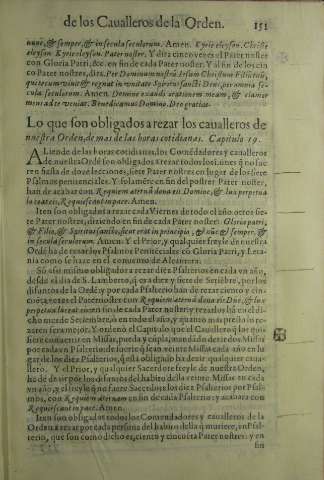 de los Caualleros de la Orden. 151
nunc, & semper, & in secula seculorum. Amen. Kyrie eleyson. Christe
eleyson. Kyrie eleyson. Pater noster. Y dira cinco vezes el Pater noster
con Gloria Patri, &c. en fin de cada Pater noster. Y al fin de los cin
co Pater nostres, dira. Per Dominum nostrũ Iesum Christum Filiũ tuũ,
qui tecum viuit & regnat in vnitate Spiritus sancti Deus, per omnia se-
cula seculorum. Amen. Domine exaudi orationem meam, & clamor
meus ad te veniat. Benedicamus Domino. Deo gratias.
Lo que son obligados a rezar los caualleros de
nuestra Orden, de mas de las horas cotidianas. Capitulo 19.
ALiende de las horas cotidianas, los Comẽdadores y caualleros
de nuestra Ordẽ son obligados a rezar todos los
ren fiesta de doze lecciones, siete Pater nostres en lugar de los siete
Psalmos penitenciales. Y solamẽte en fin del postrer Pater noster,
han de acabar con Requiem æternã dona eis Domine, & lux perpetua
luceat eis, Requiescant in pace. Amen.
Iten son obligados a rezar cada Viernes de todo el año ocho Pa-
ter nostres, diziendo en fin de cada Pater noster: Gloria patri,
& Filio, & Spiritui sancto, sicut erat in principio, & nũc & semper, &
in secula seculorum. Amen. Y el Prior, y qualquier freyle de nuestra
Ordẽ ha de rezar los Psalmos Penitenciales cõ Gloria Patri, y Leta-
nia como se haze en el conuento de Alcantara.
Son assi mismo obligados a rezar diez Psalterios en cada vn año,
desde el dia de S. Lamberto, q̃ es a diez y siete de Setiẽbre, por los
difuntos de la Ordẽ: y por cada Psalterio han de rezar ciento y cin-
cuẽta vezes el Pater noster con Requiem æternã dona eis Dñe, & lux
perpetua luceat eis en fin de cada Pater noster: y rezarlos hã en di-
cho mes de Setiembre, o en todo el año, y quanto mas presto los re-
zaren sera mejor. Y ordenó el Capitulo que el Cauallero q̃ los qui-
siere conuertir en Missas, pueda y cũpla, mandãdo dezir dos Missas
por cada vn Psalterio, de suerte q̃ sean veinte Missas cada año en lu-
gar de los diez Psalterios, q̃ está obligado ha dezir qualquier caua-
llero. Y el Prior, y qualquier Sacerdote freyle de nuestra Orden,
ha de dezir por los difuntos del habito della veinte Missas en cada
vn año, y el freyle q̃ no fuere Sacerdote los diez Psalterios por Psal-
mos, con Requiem æternam en fin de cada Psalterio: y acabara con
Requiescant in pace. Amen.
Iten son obligados todos los Comendadores y caualleros de la
Orden a rezar por cada persona del habito della q̃ muriere, vn Psal-
terio, que son como dicho es, ciento y cincuẽta Pater noster: y en
fin